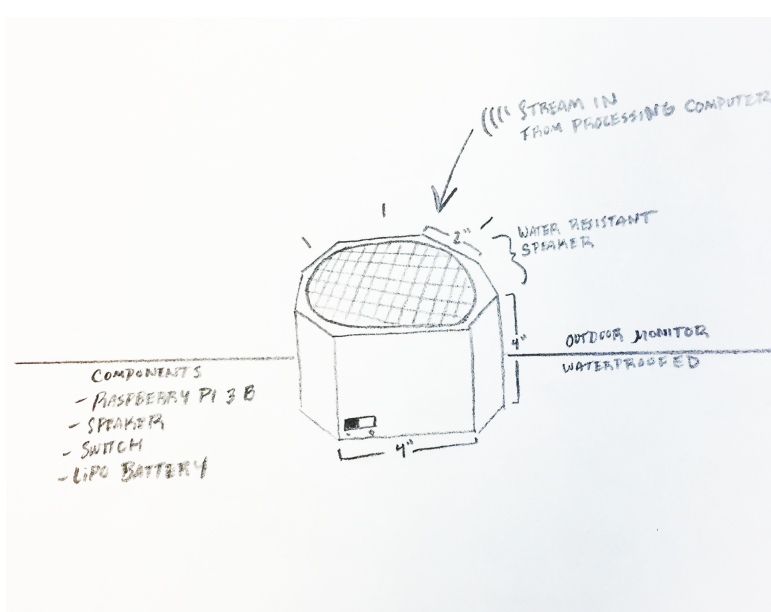 STREAM IN
FROM PROCESSING COMPUTER
2"
WATER RESISTANT
SPEAKER
4"
OUTDOOR MONITOR
WATERPROOFED
COMPONENTS
- RASPBERRY PI 3 B
- SPEAKER
- SWITCH
- LiPO BATTERY
4"